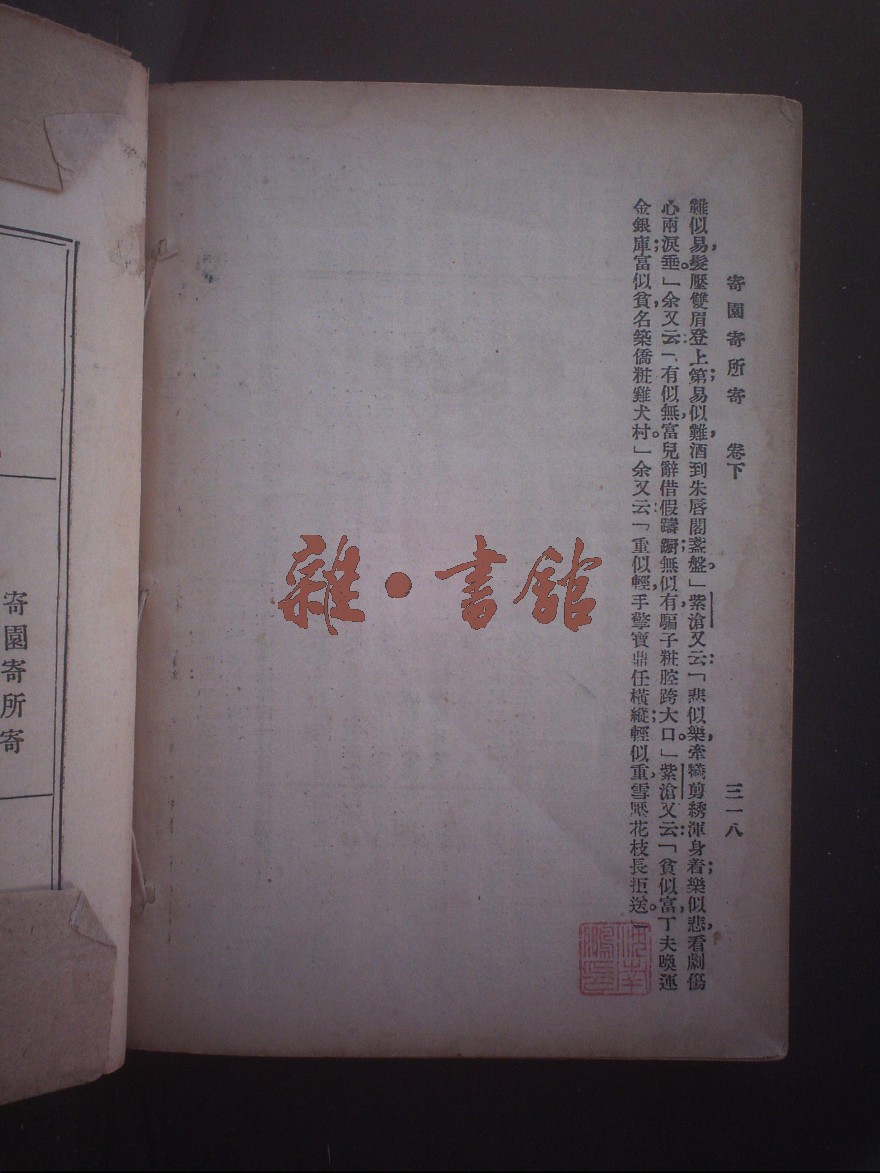 寄園寄所寄 卷下 三一八
難似易，髮壓雙眉登上第；易似難，酒到朱唇閣盞盤。」紫滄又云：「悲似樂，牽幟剪綉渾身着；樂似悲，看劇傷
心兩淚垂。」余又云：「有似無，富兒辭借假躊躕；無似有，騙子粧腔跨大口。」紫滄又云：「貧似富，丁夫喚運
金銀庫；富似貧，名築僑粧雞犬村。」余又云：「重似輕，手擎寶鼎任橫縱；輕似重，雪壓花枝長拒送。」
雜·書館
寄園寄所寄